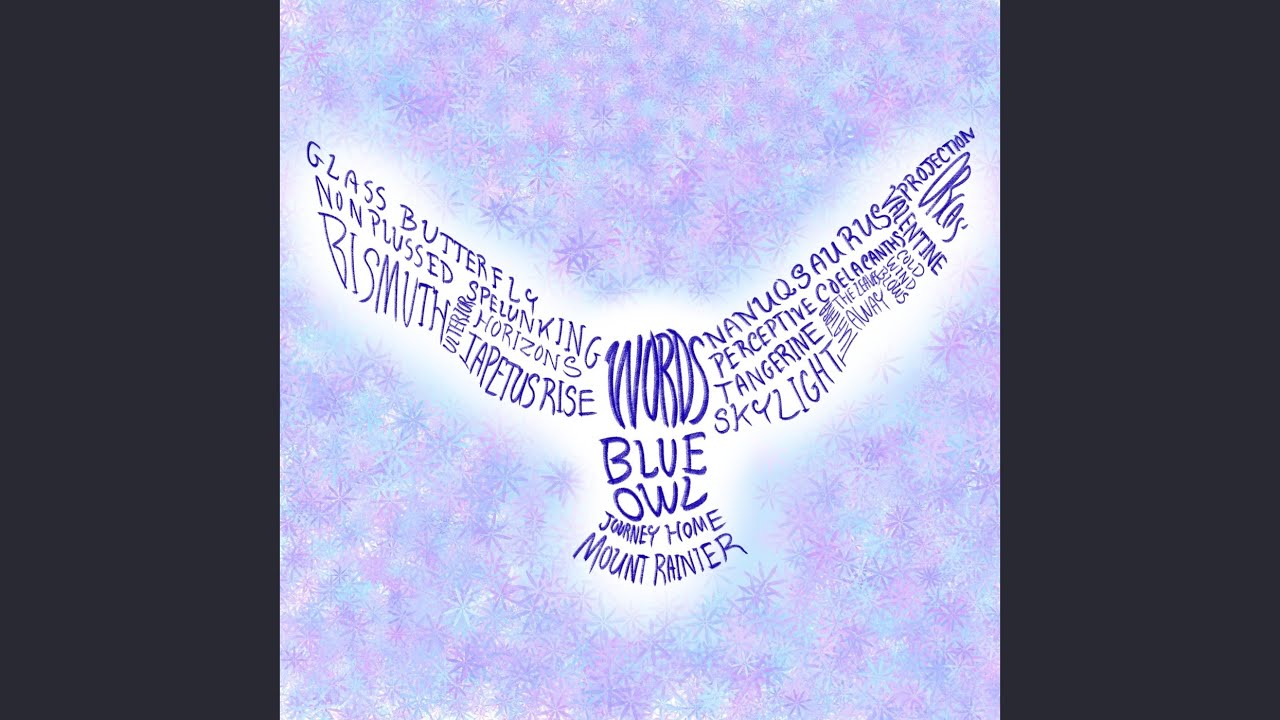 GLASS BUTTERFLY
NONPLUSSED SPELUNKING
BISMUTH
ULTERIOR
HORIZONS
IAPETUS RISE
WORDS
BLUE
OWL
JOURNEY HOME
MOUNT RAINIER
NANUQSAURUS
PERCEPTIVE COELACANTHS
TANGERINE
SKYLIGHT
THE LEAVES
COLD
WIND
BLOWS
AWAY
VALENTINE
PROJECTION